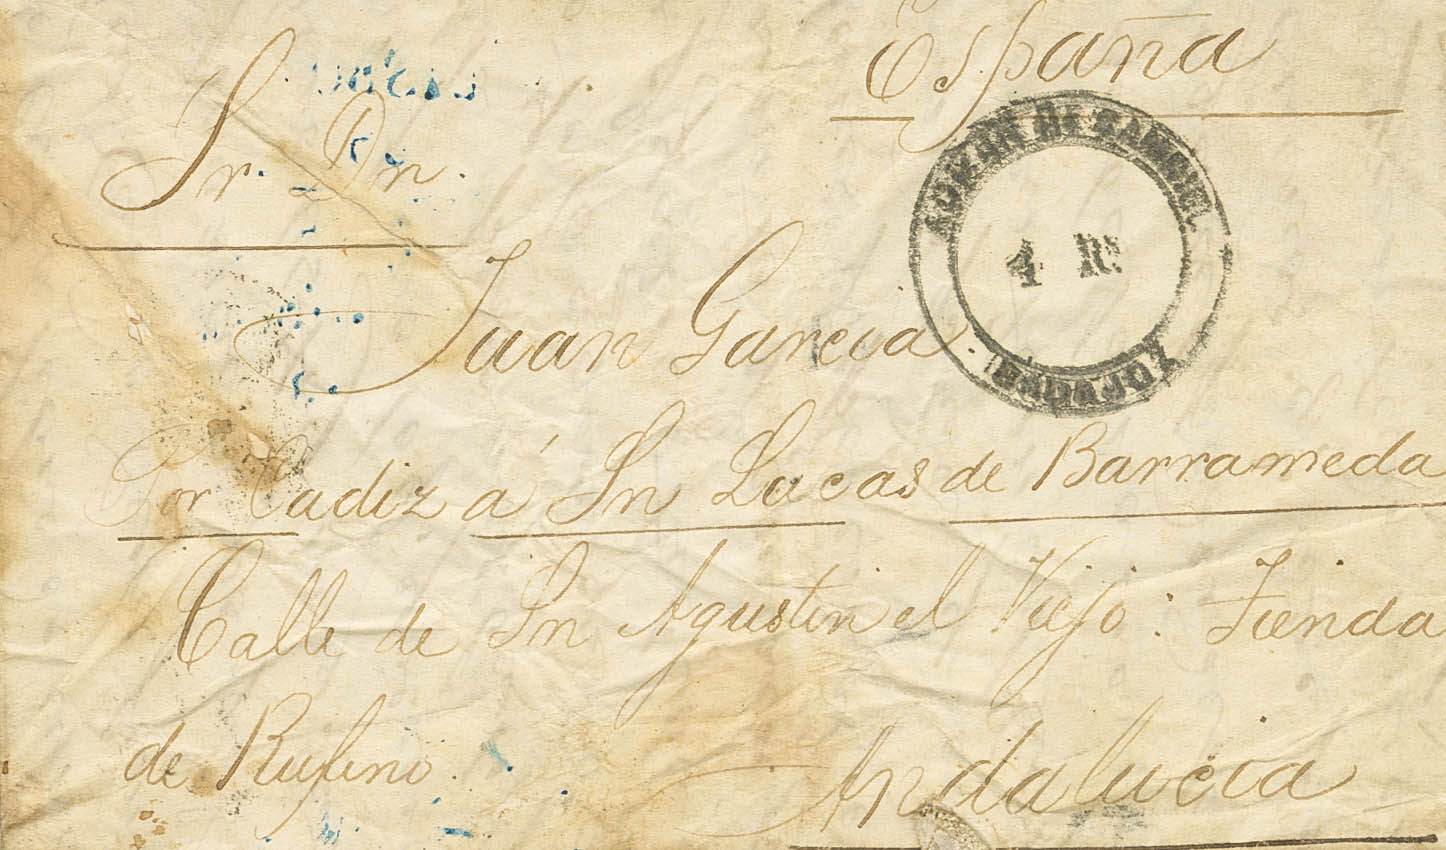 España
Sr. Dn.
4 Rs.
Juan Garcia.
Por Cadiz á Sn Lucas de Barrameda
Calle de Sn Agustin el Viejo: Tienda
de Rufino.
Andalucia